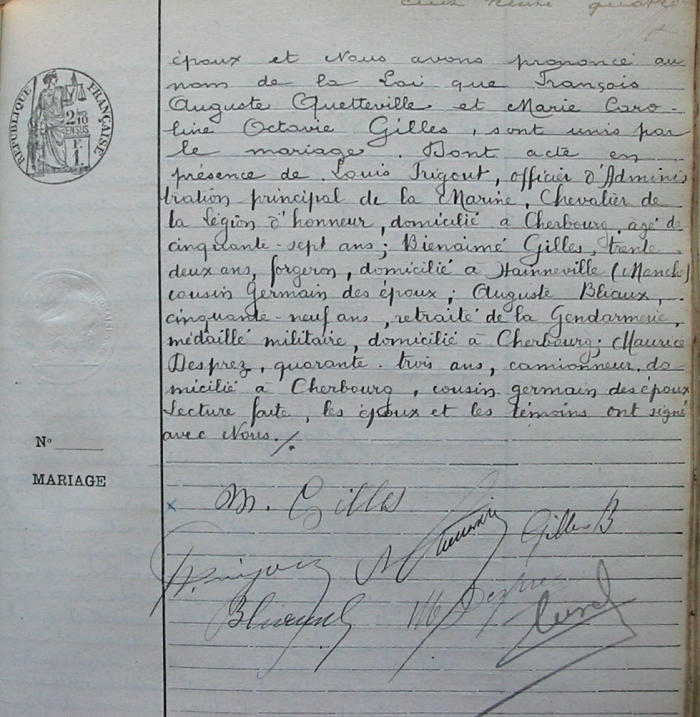 époux et Nous avons prononcé au
nom de la Loi que François
Auguste Quetteville et Marie Caro-
line Octavie Gilles, sont unis par
le mariage. Dont acte en
présence de Louis Trigout, officier d'Adminis
tration principal de la Marine, Chevalier de
la Légion d'honneur, domicilié à Cherbourg, âgé de
cinquante-sept ans; Bienaimé Gilles, trente
deux ans, forgeron, domicilié à Hainneville (Manche)
cousin Germain des époux; Auguste Bliaux,
cinquante-neuf ans, retraité de la Gendarmerie,
médaillé militaire, domicilié à Cherbourg; Maurice
Desprez, quarante-trois ans, camionneur, do
micilié à Cherbourg, cousin germain des époux
Lecture faite, les époux et les témoins ont signé
avec Nous./.
RÉPUBLIQUE FRANÇAISE
2/10
EN SUS
F.
1.
N°
MARIAGE
M. Gilles
Gilles B
M Desprez